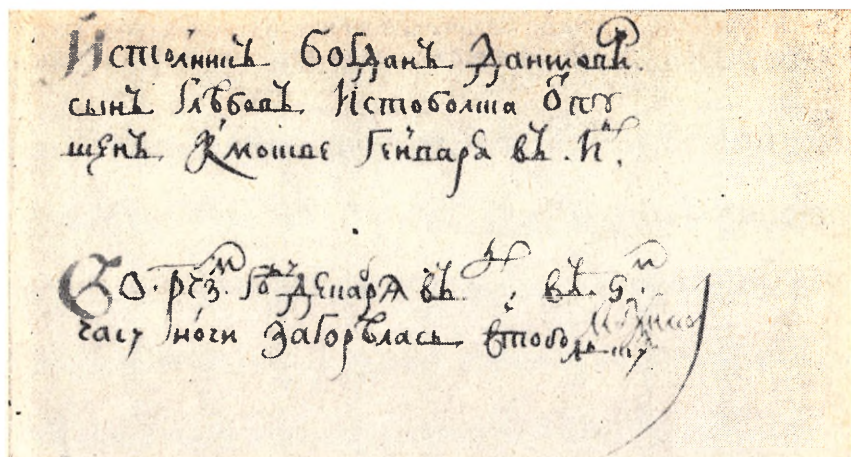 И столникъ Богданъ Даниловъ
сынъ Глѣбовъ ис Тоболска ѿпу
щенъ к Москве генваря въ
Во рчз м году генваря въ въ ѕ м
часу ночи загорѣлась в Тобо